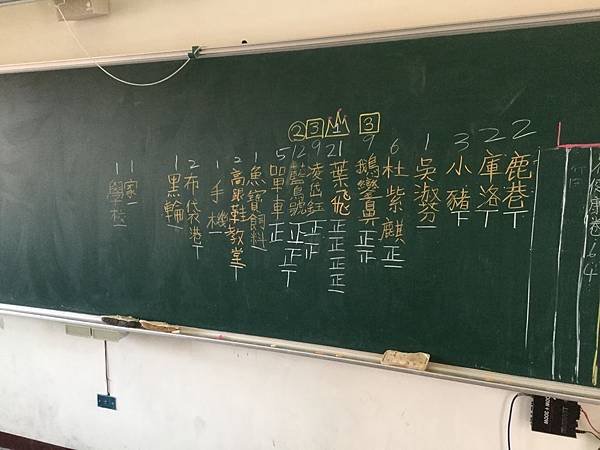 64
2鹿巷丅
2庫洛丅
3小豬下
1吳淑芬一
6杜紫麒正一
3 9鵝鑾鼻正
21葉飛正正正正一
3 9凌鈺正
2 12號正正丅
5單車正
1魚寶飼料一
2高跟鞋教堂丅
1手機一
2布袋港丅
1黑輪一
1家
1學校